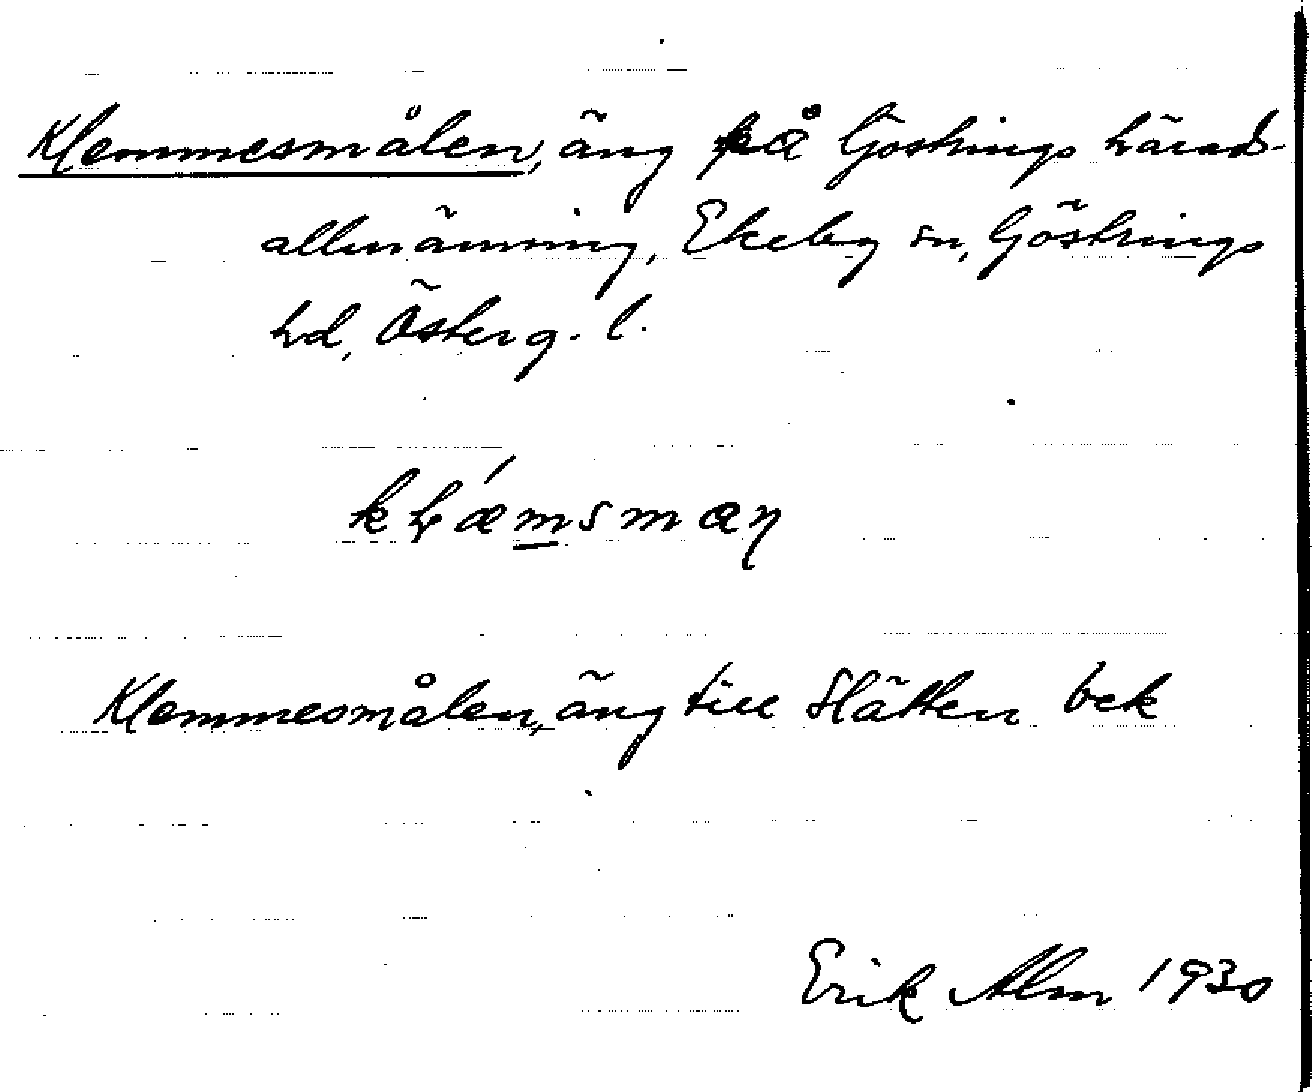 Klemmesmålen, äng på Göstrings härad-
allmänning, Ekeby sn, Göstrings
hd, Österg. l.
Klemmesmålen, äng till Slätten bek
Erik Alm 1930